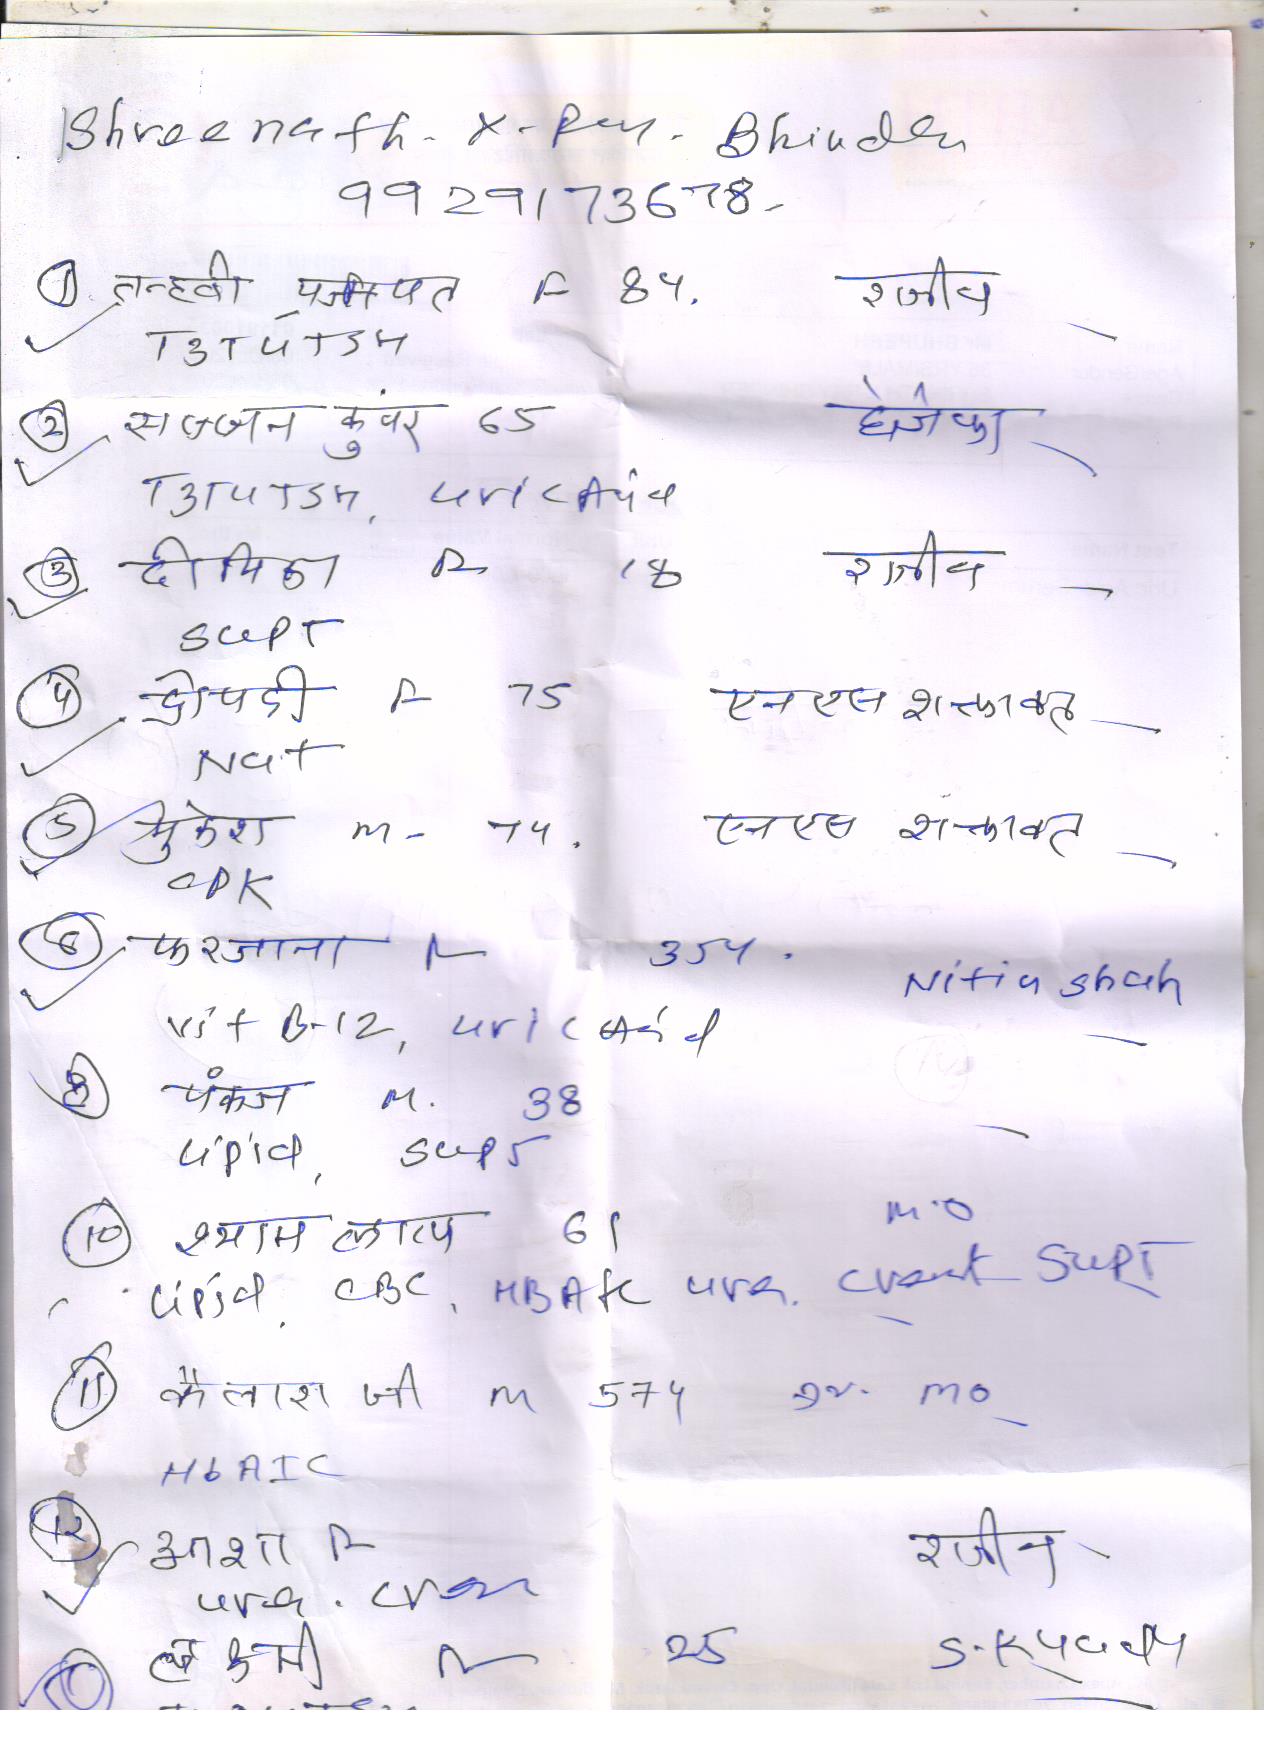 Shreenath X-Ray. Bhinder
9929173678
① F 84. राजीव
T3T4TSH
② सज्जन कुंवर 65
T3T4TSH, Uric Acid
③ F 18 राजीव
SGPT
④ द्रोपदी F 75 एनएस शक्तावत
Na+
⑤ मुकेश M- 74. एनएस शक्तावत
CPK
⑥ फरजाना F 354. Nitin Shah
Vit B-12, Uric Acid
⑧ पंकज M. 38
Lipid, SGPT
⑩ श्याम लाल 61 M.O
Lipid, CBC, HBA1C Urea. Creat SGPT
⑪ कैलाश जी M 574 Dr. MO
HbA1C
⑫ आशा F राजीव
Urea. Crea
F 25 S.K